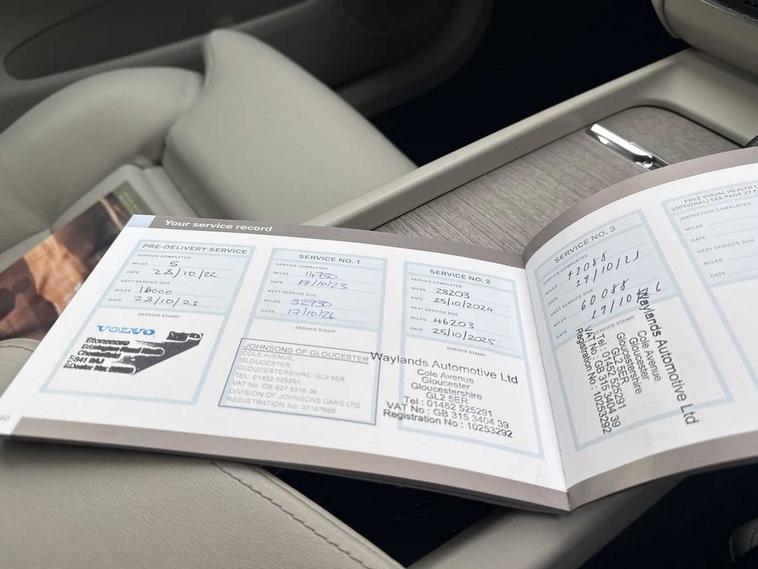 Your service record
PRE-DELIVERY SERVICE
SERVICE COMPLETED
MILES 5
DATE 28/10/22
NEXT SERVICE DUE
MILES 18000
DATE 28/10/23
SERVICE STAMP
VOLVO
Stoneacre
SERVICE NO. 1
SERVICE COMPLETED
MILES 14730
DATE 17/10/23
NEXT SERVICE DUE
MILES 32730
DATE 17/10/24
SERVICE STAMP
JOHNSONS OF GLOUCESTER
COLE AVENUE
GLOUCESTER
GLOUCESTERSHIRE, GL2 5ER
TEL: 01452 525291
DIVISION OF JOHNSONS CARS LTD
SERVICE NO. 2
SERVICE COMPLETED
MILES 28203
DATE 25/10/2024
NEXT SERVICE DUE
MILES 46203
DATE 25/10/2025
SERVICE STAMP
Waylands Automotive Ltd
Cole Avenue
Gloucester
Gloucestershire
GL2 5ER
Tel : 01452 525291
VAT No : GB 315 3404 39
Registration No : 10253292
SERVICE NO. 3
SERVICE COMPLETED
MILES 42088
DATE
NEXT SERVICE DUE
MILES 60088
DATE
SERVICE STAMP
Waylands Automotive Ltd
Cole Avenue
Gloucester
Gloucestershire
GL2 5ER
Tel : 01452 525291
VAT No : GB 315 3404 39
Registration No : 10253292
FREE VISUAL HEALTH
(OPTIONAL) SEE PAGE 37
COMPLETED
MILES
DATE
NEXT SERVICE DUE
MILES
DATE